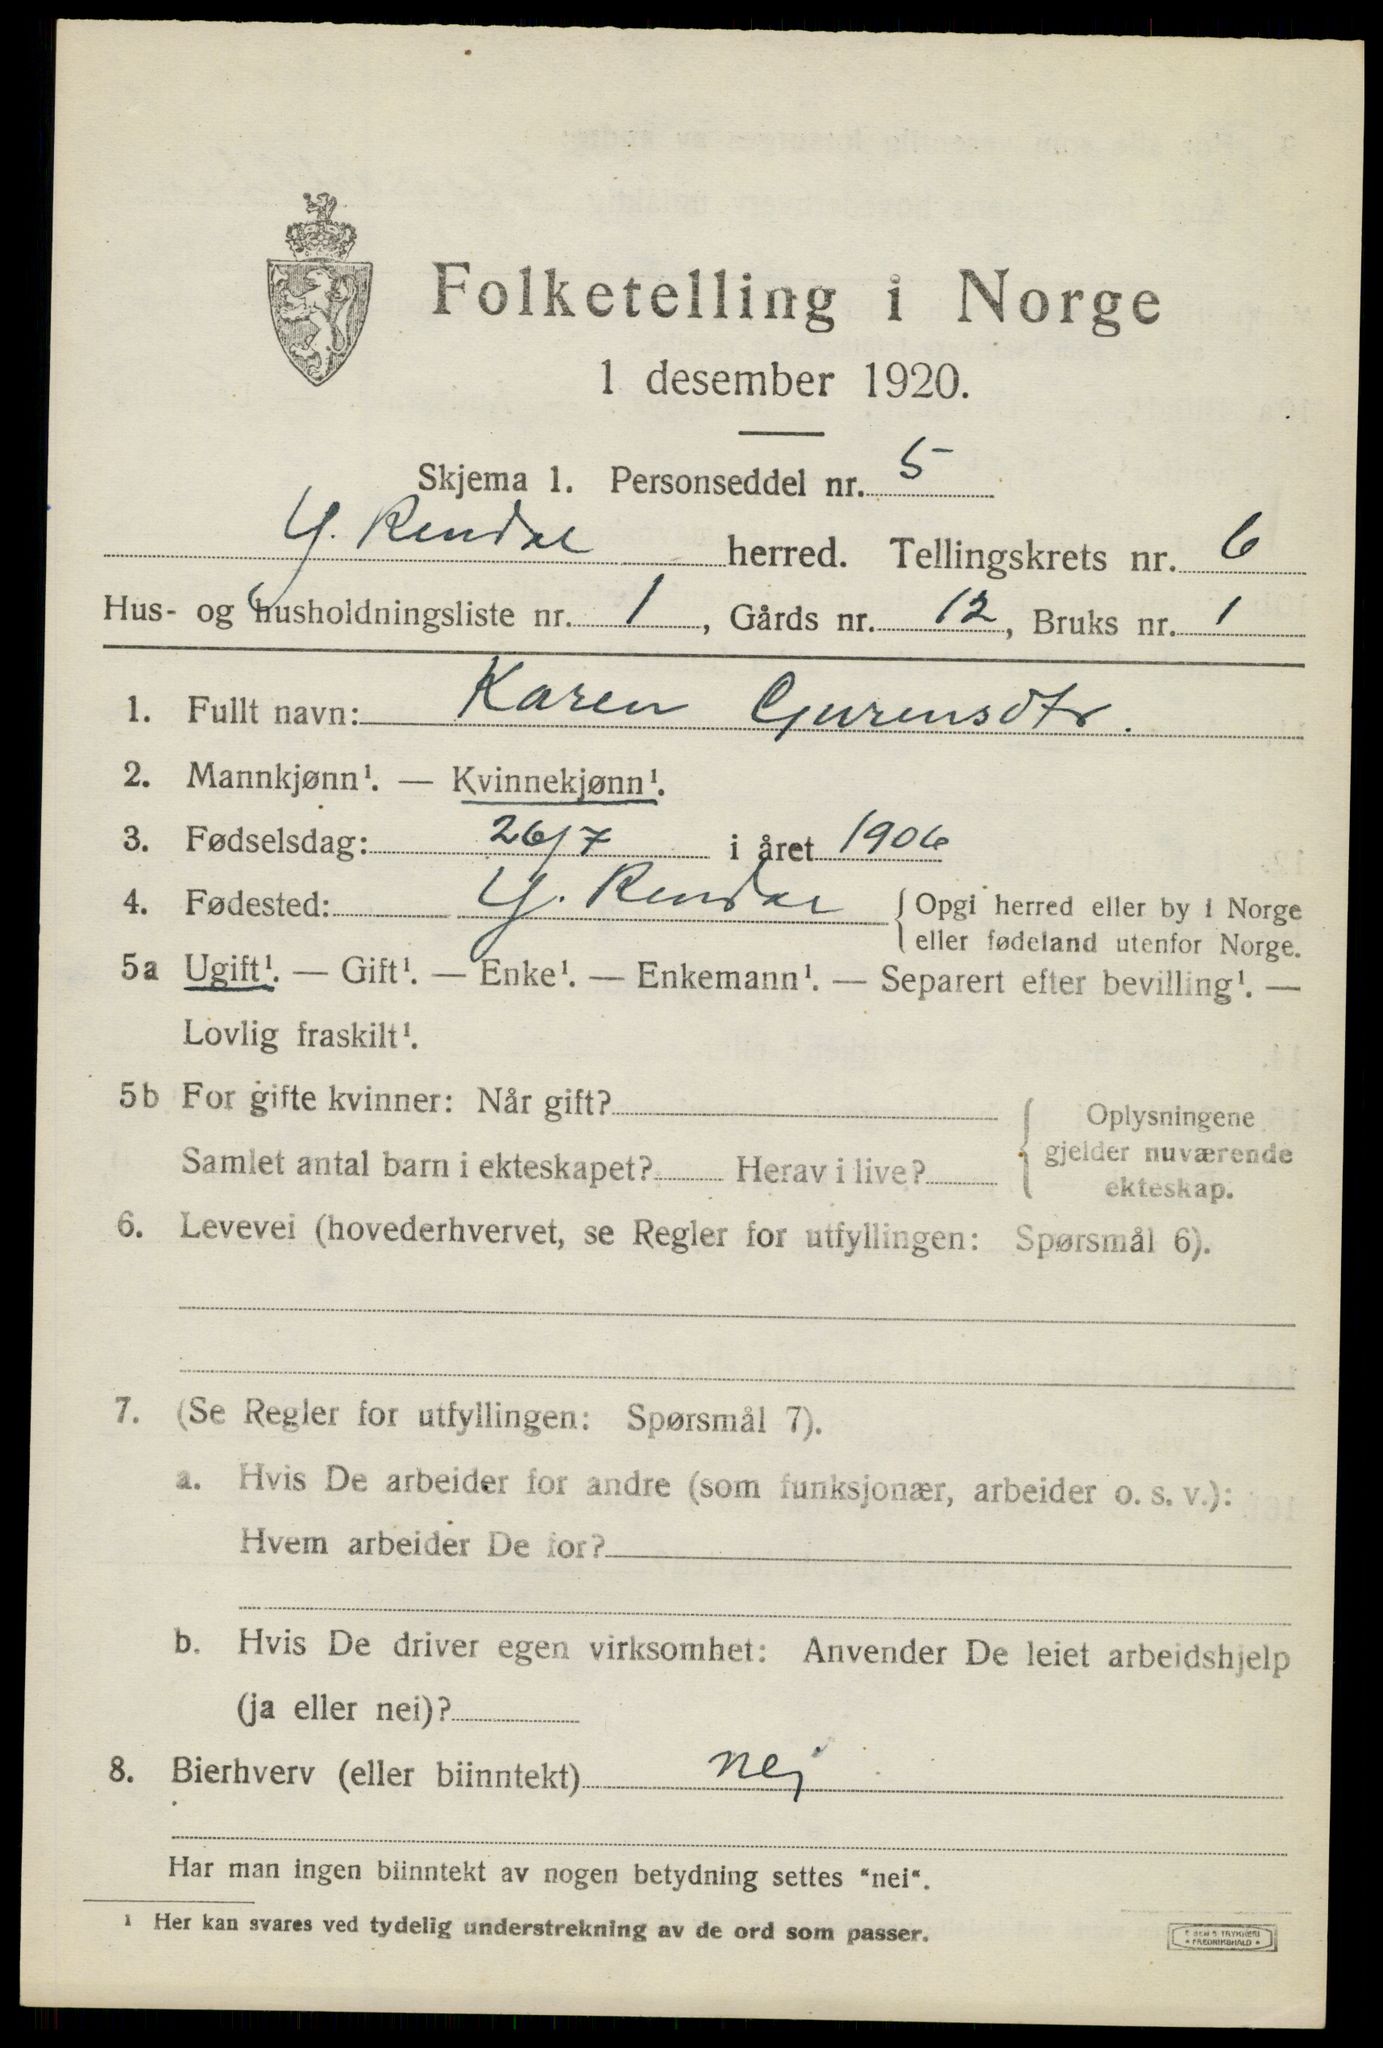 Folketelling i Norge
1 desember 1920.
Skjema 1. Personseddel nr. 5
Y. Rendal herred. Tellingskrets nr. 6
Hus- og husholdningsliste nr. 1, Gårds nr. 12, Bruks nr. 1
1. Fullt navn: Karen
2. Mannkjønn¹. — Kvinnekjønn¹.
3. Fødselsdag: 26/7 i året 1906
4. Fødested: Y. Rendal { Opgi herred eller by i Norge
eller fødeland utenfor Norge.
5a Ugift¹. — Gift¹. — Enke¹. — Enkemann¹. — Separert efter bevilling¹. —
Lovlig fraskilt¹.
5b For gifte kvinner: Når gift?
Samlet antal barn i ekteskapet? Herav i live?
Oplysningene
gjelder nuværende
ekteskap.
6. Levevei (hovederhvervet, se Regler for utfyllingen: Spørsmål 6).
7. (Se Regler for utfyllingen: Spørsmål 7).
a. Hvis De arbeider for andre (som funksjonær, arbeider o. s. v.):
Hvem arbeider De for?
b. Hvis De driver egen virksomhet: Anvender De leiet arbeidshjelp
(ja eller nei)?
8. Bierhverv (eller biinntekt) nej
Har man ingen biinntekt av nogen betydning settes "nei".
¹ Her kan svares ved tydelig understrekning av de ord som passer.
FREDRIKSHALD